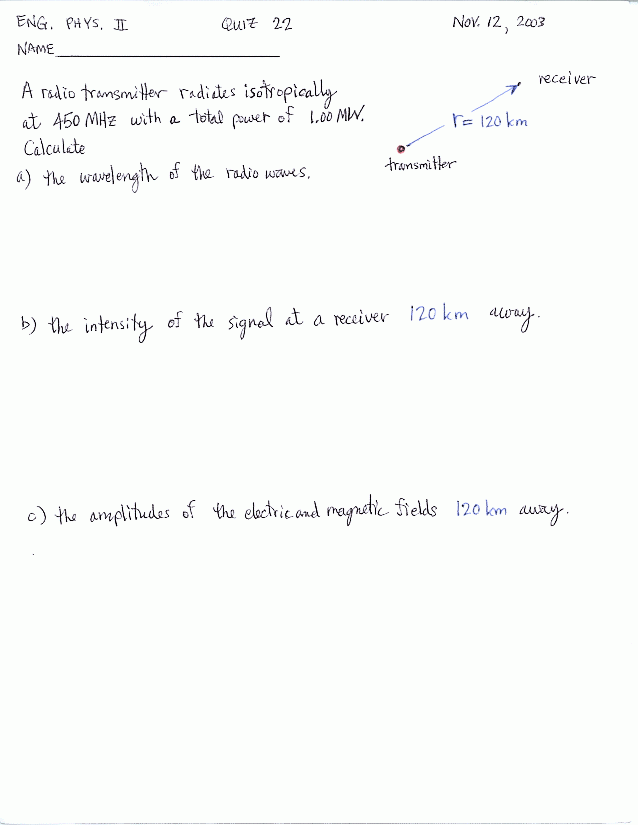 ENG. PHYS. II QUIZ 22 NOV. 12, 2003
NAME
A radio transmitter radiates isotropically
at 450 MHz with a total power of 1.00 MW.
Calculate
a) the wavelength of the radio waves.
receiver
r = 120 km
transmitter
b) the intensity of the signal at a receiver 120 km away.
c) the amplitudes of the electric and magnetic fields 120 km away.